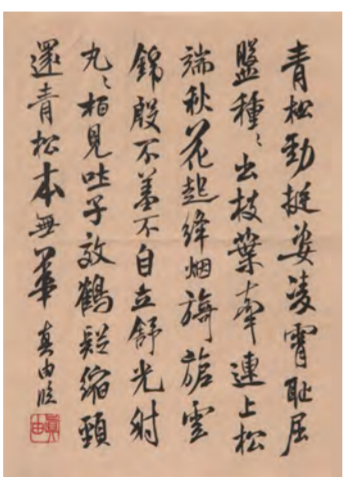 青松勁挺姿凌霄耻屈
盤種〻出枝葉牽連上松
端秋花起絳烟旖旎雲
錦殷不羞不自立舒光射
丸〻柏見吐子效鶴疑縮頸
還青松本無華 真由臨
真由